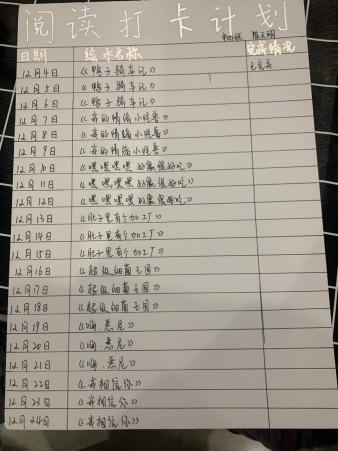 阅读打卡计划
日期 绘本名称 完成情况
12月4日 《鸭子骑车记》 已完成
12月5日 《鸭子骑车记》
12月6日 《鸭子骑车记》
12月7日 《我的情绪小怪兽》
12月8日 《我的情绪小怪兽》
12月9日 《我的情绪小怪兽》
12月10日 《嘿嘿嘿嘿 好像很好吃》
12月11日 《嘿嘿嘿嘿 好像很好吃》
12月12日 《嘿嘿嘿嘿 好像很好吃》
12月13日 《肚子里有个加工厂》
12月14日 《肚子里有个加工厂》
12月15日 《肚子里有个加工厂》
12月16日 《超级细菌王国》
12月17日 《超级细菌王国》
12月18日 《超级细菌王国》
12月19日 《嗨.悉尼》
12月20日 《嗨.悉尼》
12月21日 《嗨.悉尼》
12月22日 《我相信你》
12月23日 《我相信你》
12月24日 《我相信你》